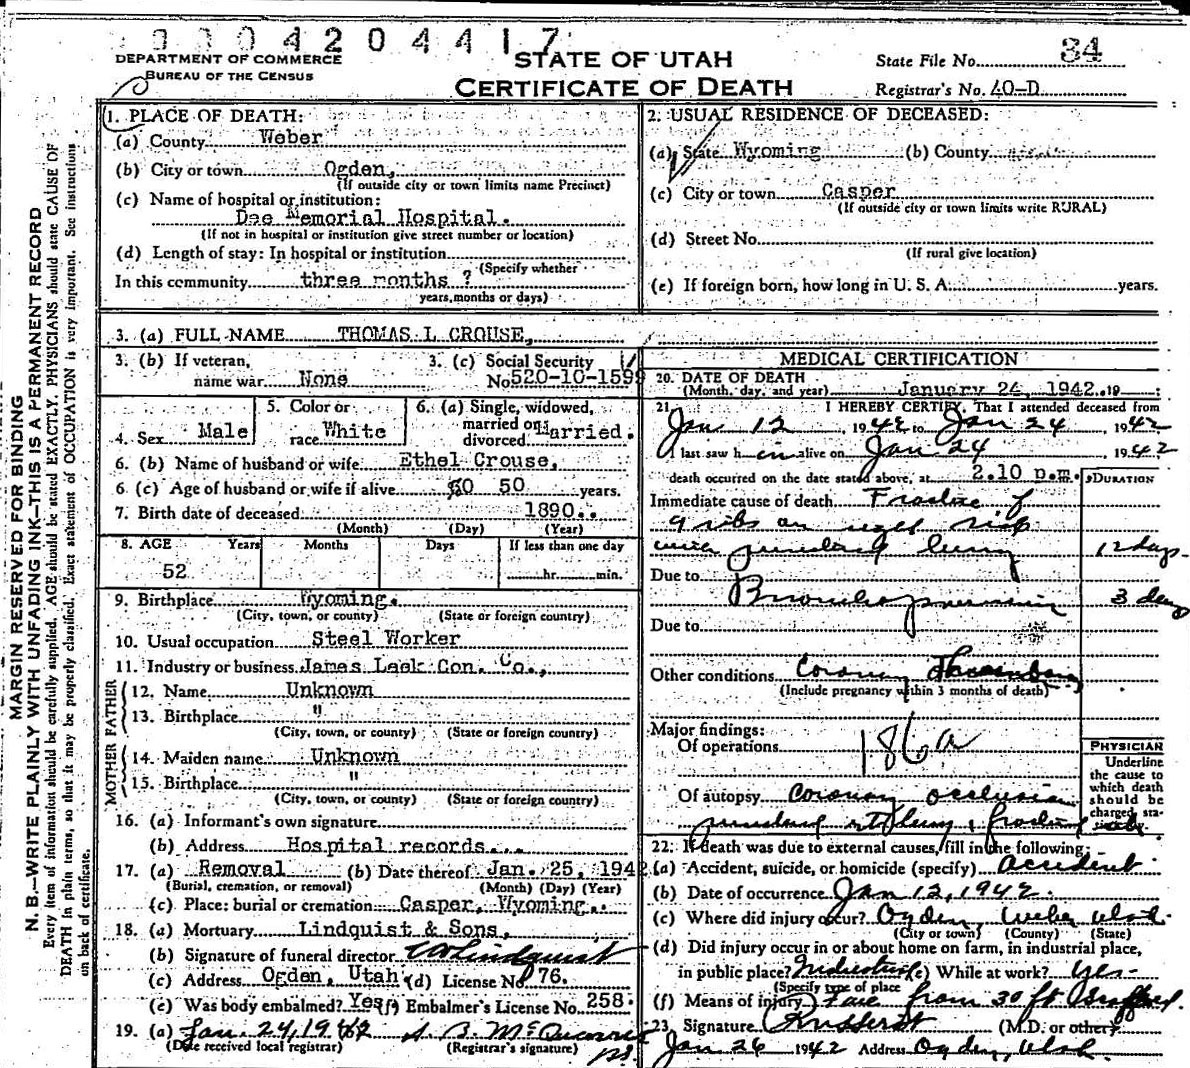 0004204417
DEPARTMENT OF COMMERCE
BUREAU OF THE CENSUS
STATE OF UTAH
CERTIFICATE OF DEATH
State File No. 84
Registrar's No. 40-D
MARGIN RESERVED FOR BINDING
N. B.—WRITE PLAINLY WITH UNFADING INK—THIS IS A PERMANENT RECORD
Every item of information should be carefully supplied. AGE should be stated EXACTLY. PHYSICIANS should state CAUSE OF
DEATH in plain terms, so that it may be properly classified. Exact statement of OCCUPATION is very important. See instructions
on back of certificate.
1. PLACE OF DEATH:
(a) County Weber
(b) City or town Ogden,
(If outside city or town limits name Precinct)
(c) Name of hospital or institution:
Dee Memorial Hospital.
(If not in hospital or institution give street number or location)
(d) Length of stay: In hospital or institution
(Specify whether
In this community three months ?
years, months or days)
2. USUAL RESIDENCE OF DECEASED:
(a) State Wyoming (b) County
(c) City or town Casper
(If outside city or town limits write RURAL)
(d) Street No.
(If rural give location)
(e) If foreign born, how long in U. S. A. years.
3. (a) FULL NAME THOMAS L CROUSE,
3. (b) If veteran, name war None
3. (c) Social Security No. 520-10-1599
4. Sex Male
5. Color or race White
6. (a) Single, widowed, married or divorced Married.
6. (b) Name of husband or wife Ethel Crouse,
6 (c) Age of husband or wife if alive 50 years.
7. Birth date of deceased 1890..
(Month) (Day) (Year)
8. AGE Years Months Days If less than one day
52 hr. min.
9. Birthplace Wyoming.
(City, town, or county) (State or foreign country)
10. Usual occupation Steel Worker
11. Industry or business James Leek Con. Co.,
FATHER
12. Name Unknown
13. Birthplace "
(City, town, or county) (State or foreign country)
MOTHER
14. Maiden name Unknown
15. Birthplace "
(City, town, or county) (State or foreign country)
16. (a) Informant's own signature
(b) Address Hospital records...
17. (a) Removal (b) Date thereof Jan. 25, 1942
(Burial, cremation, or removal) (Month) (Day) (Year)
(c) Place: burial or cremation Casper, Wyoming..
18. (a) Mortuary Lindquist & Sons,
(b) Signature of funeral director Lindquist
(c) Address Ogden, Utah (d) License No 76.
(e) Was body embalmed? Yes (f) Embalmer's License No. 258.
19. (a) Jan. 24, 1942
(Date received local registrar) (Registrar's signature)
MEDICAL CERTIFICATION
20. DATE OF DEATH
(Month, day, and year) January 24, 1942. 19
21. I HEREBY CERTIFY, That I attended deceased from
Jan 12, 1942 to Jan 24, 1942
I last saw h im alive on Jan 24 1942
death occurred on the date stated above, at 2.10 p.m.
DURATION
Immediate cause of death Fracture of
9 ribs on right side
with punctured lung 12 days
Due to
Bronchopneumonia 3 days
Due to
Other conditions Coronary Thrombosis
(Include pregnancy within 3 months of death)
Major findings:
Of operations 186a
Of autopsy Coronary occlusion
punctured rt lung & fractured ribs
PHYSICIAN
Underline
the cause to
which death
should be
charged sta-
22. If death was due to external causes, fill in the following:
(a) Accident, suicide, or homicide (specify) accident
(b) Date of occurrence Jan 12, 1942.
(c) Where did injury occur? Ogden, Weber Utah.
(City or town) (County) (State)
(d) Did injury occur in or about home on farm, in industrial place,
in public place? Industry (e) While at work? yes-
(Specify type of place
(f) Means of injury Fall from 30 ft Scaffold.
23. Signature (M.D. or other)
Jan 26 1942 Address Ogden, Utah.